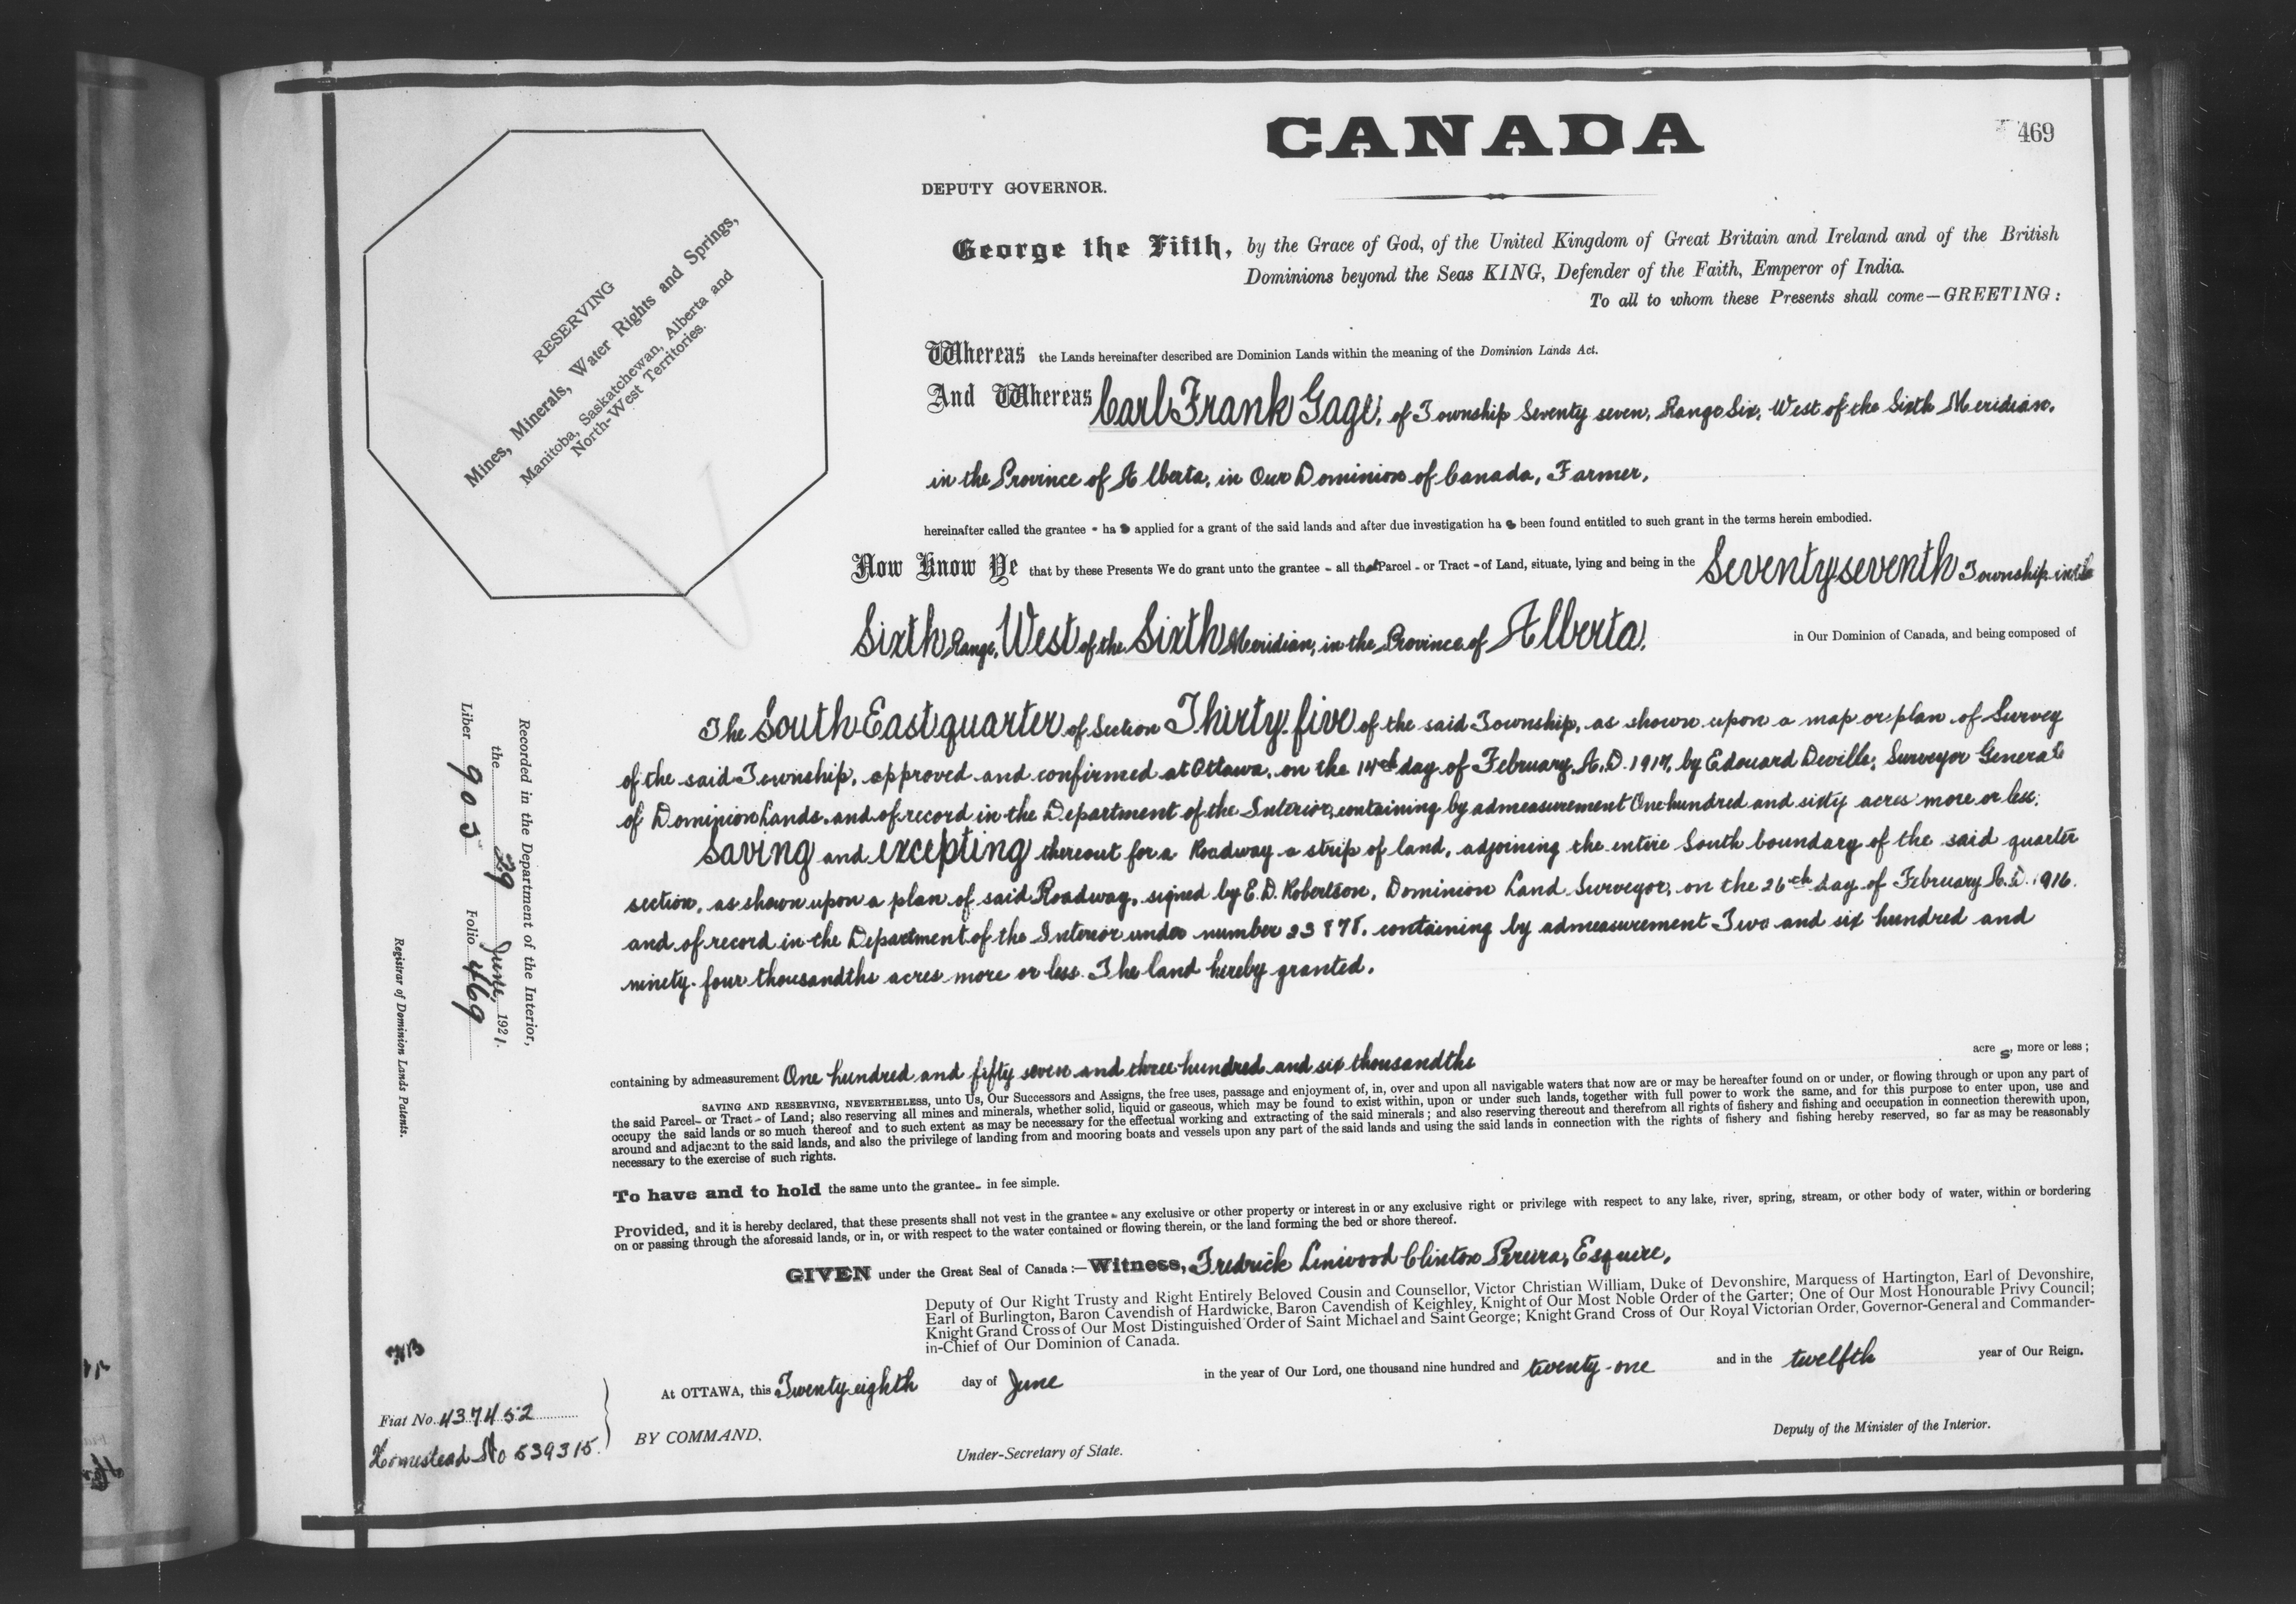 CANADA
469
DEPUTY GOVERNOR.
George the Fifth, by the Grace of God, of the United Kingdom of Great Britain and Ireland and of the British
Dominions beyond the Seas KING, Defender of the Faith, Emperor of India.
To all to whom these Presents shall come—GREETING:
RESERVING
Mines, Minerals, Water Rights and Springs,
Manitoba, Saskatchewan, Alberta and
North-West Territories.
Whereas the Lands hereinafter described are Dominion Lands within the meaning of the Dominion Lands Act.
And Whereas Carl Frank Gage, of Township Seventy seven, Range Six, West of the Sixth Meridian,
in the Province of Alberta, in Our Dominion of Canada, Farmer,
hereinafter called the grantee - has applied for a grant of the said lands and after due investigation has been found entitled to such grant in the terms herein embodied.
Now Know Ye that by these Presents We do grant unto the grantee - all that Parcel - or Tract - of Land, situate, lying and being in the Seventy-seventh Township in the
Sixth Range, West of the Sixth Meridian, in the Province of Alberta, in Our Dominion of Canada, and being composed of
The South East quarter of Section Thirty-five of the said Township, as shown upon a map or plan of Survey
of the said Township, approved and confirmed at Ottawa, on the 14th day of February, A.D. 1917, by Edouard Deville, Surveyor General
of Dominion Lands, and of record in the Department of the Interior, containing by admeasurement One hundred and sixty acres more or less;
saving and excepting thereout for a Roadway a strip of land, adjoining the entire South boundary of the said quarter
section, as shown upon a plan of said Roadway, signed by E. D. Robertson, Dominion Land Surveyor, on the 26th day of February A.D. 1916.
and of record in the Department of the Interior under number 23878, containing by admeasurement Two and six hundred and
ninety-four thousandths acres more or less. The land hereby granted,
containing by admeasurement One hundred and fifty seven and three hundred and six thousandths acres, more or less;
SAVING AND RESERVING, NEVERTHELESS, unto Us, Our Successors and Assigns, the free uses, passage and enjoyment of, in, over and upon all navigable waters that now are or may be hereafter found on or under, or flowing through or upon any part of
the said Parcel- or Tract - of Land; also reserving all mines and minerals, whether solid, liquid or gaseous, which may be found to exist within, upon or under such lands, together with full power to work the same, and for this purpose to enter upon, use and
occupy the said lands or so much thereof and to such extent as may be necessary for the effectual working and extracting of the said minerals; and also reserving thereout and therefrom all rights of fishery and fishing and occupation in connection therewith upon,
around and adjacent to the said lands, and also the privilege of landing from and mooring boats and vessels upon any part of the said lands and using the said lands in connection with the rights of fishery and fishing hereby reserved, so far as may be reasonably
necessary to the exercise of such rights.
To have and to hold the same unto the grantee- in fee simple.
Provided, and it is hereby declared, that these presents shall not vest in the grantee - any exclusive or other property or interest in or any exclusive right or privilege with respect to any lake, river, spring, stream, or other body of water, within or bordering
on or passing through the aforesaid lands, or in, or with respect to the water contained or flowing therein, or the land forming the bed or shore thereof.
GIVEN under the Great Seal of Canada:—Witness, Fredrick Linwood Clinton Pereira, Esquire,
Deputy of Our Right Trusty and Right Entirely Beloved Cousin and Counsellor, Victor Christian William, Duke of Devonshire, Marquess of Hartington, Earl of Devonshire,
Earl of Burlington, Baron Cavendish of Hardwicke, Baron Cavendish of Keighley, Knight of Our Most Noble Order of the Garter; One of Our Most Honourable Privy Council;
Knight Grand Cross of Our Most Distinguished Order of Saint Michael and Saint George; Knight Grand Cross of Our Royal Victorian Order, Governor-General and Commander-
in-Chief of Our Dominion of Canada.
At OTTAWA, this Twenty eighth day of June in the year of Our Lord, one thousand nine hundred and twenty-one and in the twelfth year of Our Reign.
BY COMMAND,
Under-Secretary of State.
Deputy of the Minister of the Interior.
Fiat No. 437452
Homestead No 539315.
Recorded in the Department of the Interior,
the 29 June, 1921.
Liber 903 Folio 469
Registrar of Dominion Lands Patents.